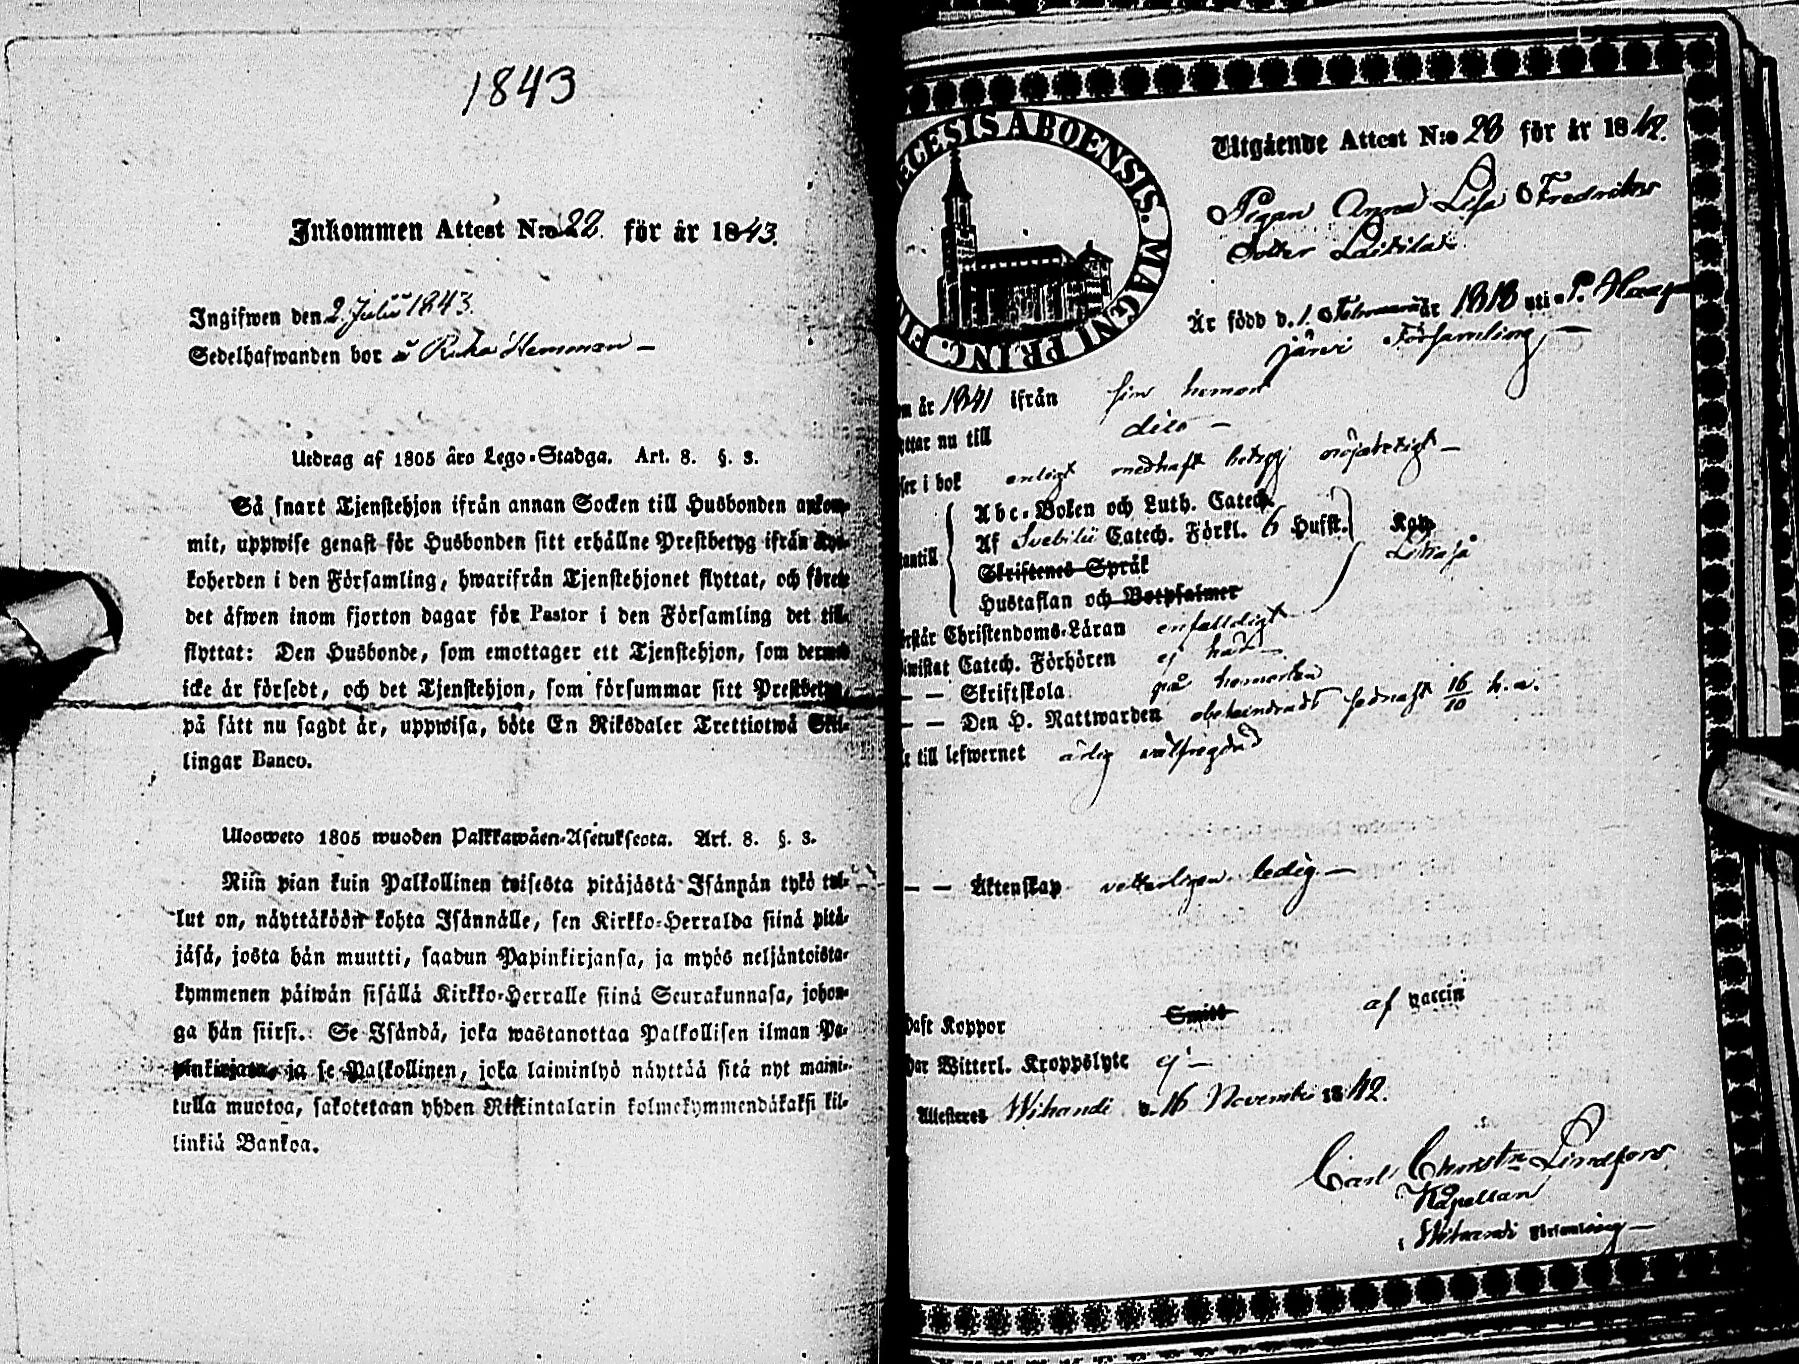 1843
Inkommen Attest N:o 22 för år 1843.
Ingifwen den 2 Julii 1843.
Sedelhafwanden bor å Ruka Hemman —
Utdrag af 1805 års Lego-Stadga. Art. 8. §. 3.
Så snart Tjenstehjon ifrån annan Socken till Husbonden ankom-
mit, uppwise genast för Husbonden sitt erhållne Prestbetyg ifrån Kyr-
koherden i den Församling, hwarifrån Tjenstehjonet flyttat, och förete
det äfwen inom fjorton dagar för Pastor i den Församling det till-
flyttat: Den Husbonde, som emottager ett Tjenstehjon, som dermed
icke är försedt, och det Tjenstehjon, som försummar sitt Prestbetyg,
på sätt nu sagdt är, uppwisa, böte En Riksdaler Trettiotwå Skil-
lingar Banco.
Ulosweto 1805 wuoden Palkkawäen-Asetuksesta. Art. 8. §. 3.
Niin pian kuin Palkollinen toisesta pitäjästä Isännän tykö tul-
lut on, näyttäköön kohta Isännälle, sen Kirkko-Herralda siinä pitä-
jäsä, josta hän muutti, saadun Papinkirjansa, ja myös neljäntoista-
kymmenen päiwän sisällä Kirkko-Herralle siinä Seurakunnasa, johon-
ga hän siirsi. Se Isändä, joka wastanottaa Palkollisen ilman Pa-
pinkirjata, ja se Palkollinen, joka laiminlyö näyttää sitä nyt maini-
tulla muotoa, sakotetaan yhden Riikintalarin kolmekymmendäkaksi kil-
linkiä Bankoa.
ECESIS ABOENSIS. MAGNI PRINC. FIN
Utgående Attest N:o 23 för år 1842.
Pigan Anna Lisa Fredriks
dotter Laitilas
Är född d. 1 Februarii år 1818 uti P. Haapa
järvi Församling —
m år 1841 ifrån sin hemort
yttar nu till dito —
ser i bok enligt medhaft betyg nöjaktigt —
Abc-Boken och Luth. Catech.
Af Svebilii Catech. Förkl. 6 Hufst. Kan
antill Likaså
Skriftenes Språk
Hustaflan och Botpsalmer
rstår Christendoms-Läran enfaldigt
iwistat Catech. Förhören ej här
— — Skriftskola på hemorten
— — Den H. Nattwarden obehindradt sednast 16/10 h. a.
t till lefwernet ärlig wälfrejdad
— — Äktenskap vetterligen ledig —
Haft Koppor Smitt af vaccin
Har Witterl. Kroppslyte ej —
Attesteres Wihandi d. 16 November 1842.
Carl Christn Lindfors
Kapellan
i Wihandi Församling —